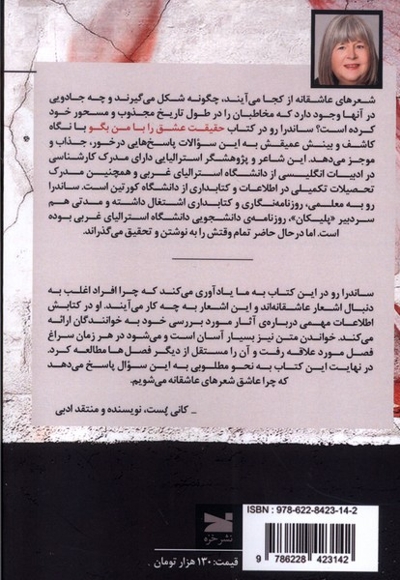 شعرهای عاشقانه از کجا می‌آیند، چگونه شکل می‌گیرند و چه جادویی
در آنها وجود دارد که مخاطبان را در طول تاریخ مجذوب و مسحور خود
کرده است؟ ساندرا رو در کتاب حقیقت عشق را با من بگو با نگاه
کاشف و بینش عمیقش به این سؤالات پاسخ‌هایی درخور، جذاب و
موجز می‌دهد. این شاعر و پژوهشگر استرالیایی دارای مدرک کارشناسی
در ادبیات انگلیسی از دانشگاه استرالیای غربی و همچنین مدرک
تحصیلات تکمیلی در اطلاعات و کتابداری از دانشگاه کورتین است. ساندرا
رو به معلمی، روزنامه‌نگاری و کتابداری اشتغال داشته و مدتی هم
سردبیر «پلیکان»، روزنامه‌ی دانشجویی دانشگاه استرالیای غربی بوده
است. اما درحال حاضر تمام وقتش را به نوشتن و تحقیق می‌گذراند.
ساندرا رو در این کتاب به ما یادآوری می‌کند که چرا افراد اغلب به
دنبال اشعار عاشقانه‌اند و این اشعار به چه کار می‌آیند. او در کتابش
اطلاعات مهمی درباره‌ی آثار مورد بررسی خود به خوانندگان ارائه
می‌کند. خواندن متن نیز بسیار آسان است و می‌شود در هر زمان سراغ
فصل مورد علاقه رفت و آن را مستقل از دیگر فصل‌ها مطالعه کرد.
در نهایت این کتاب به نحو مطلوبی به این سؤال پاسخ می‌دهد
که چرا عاشق شعرهای عاشقانه می‌شویم.
ـ کانی پُست، نویسنده و منتقد ادبی
ISBN : 978-622-8423-14-2
نشر خزه
9 786228 423142
قیمت: ۱۳۰ هزار تومان .